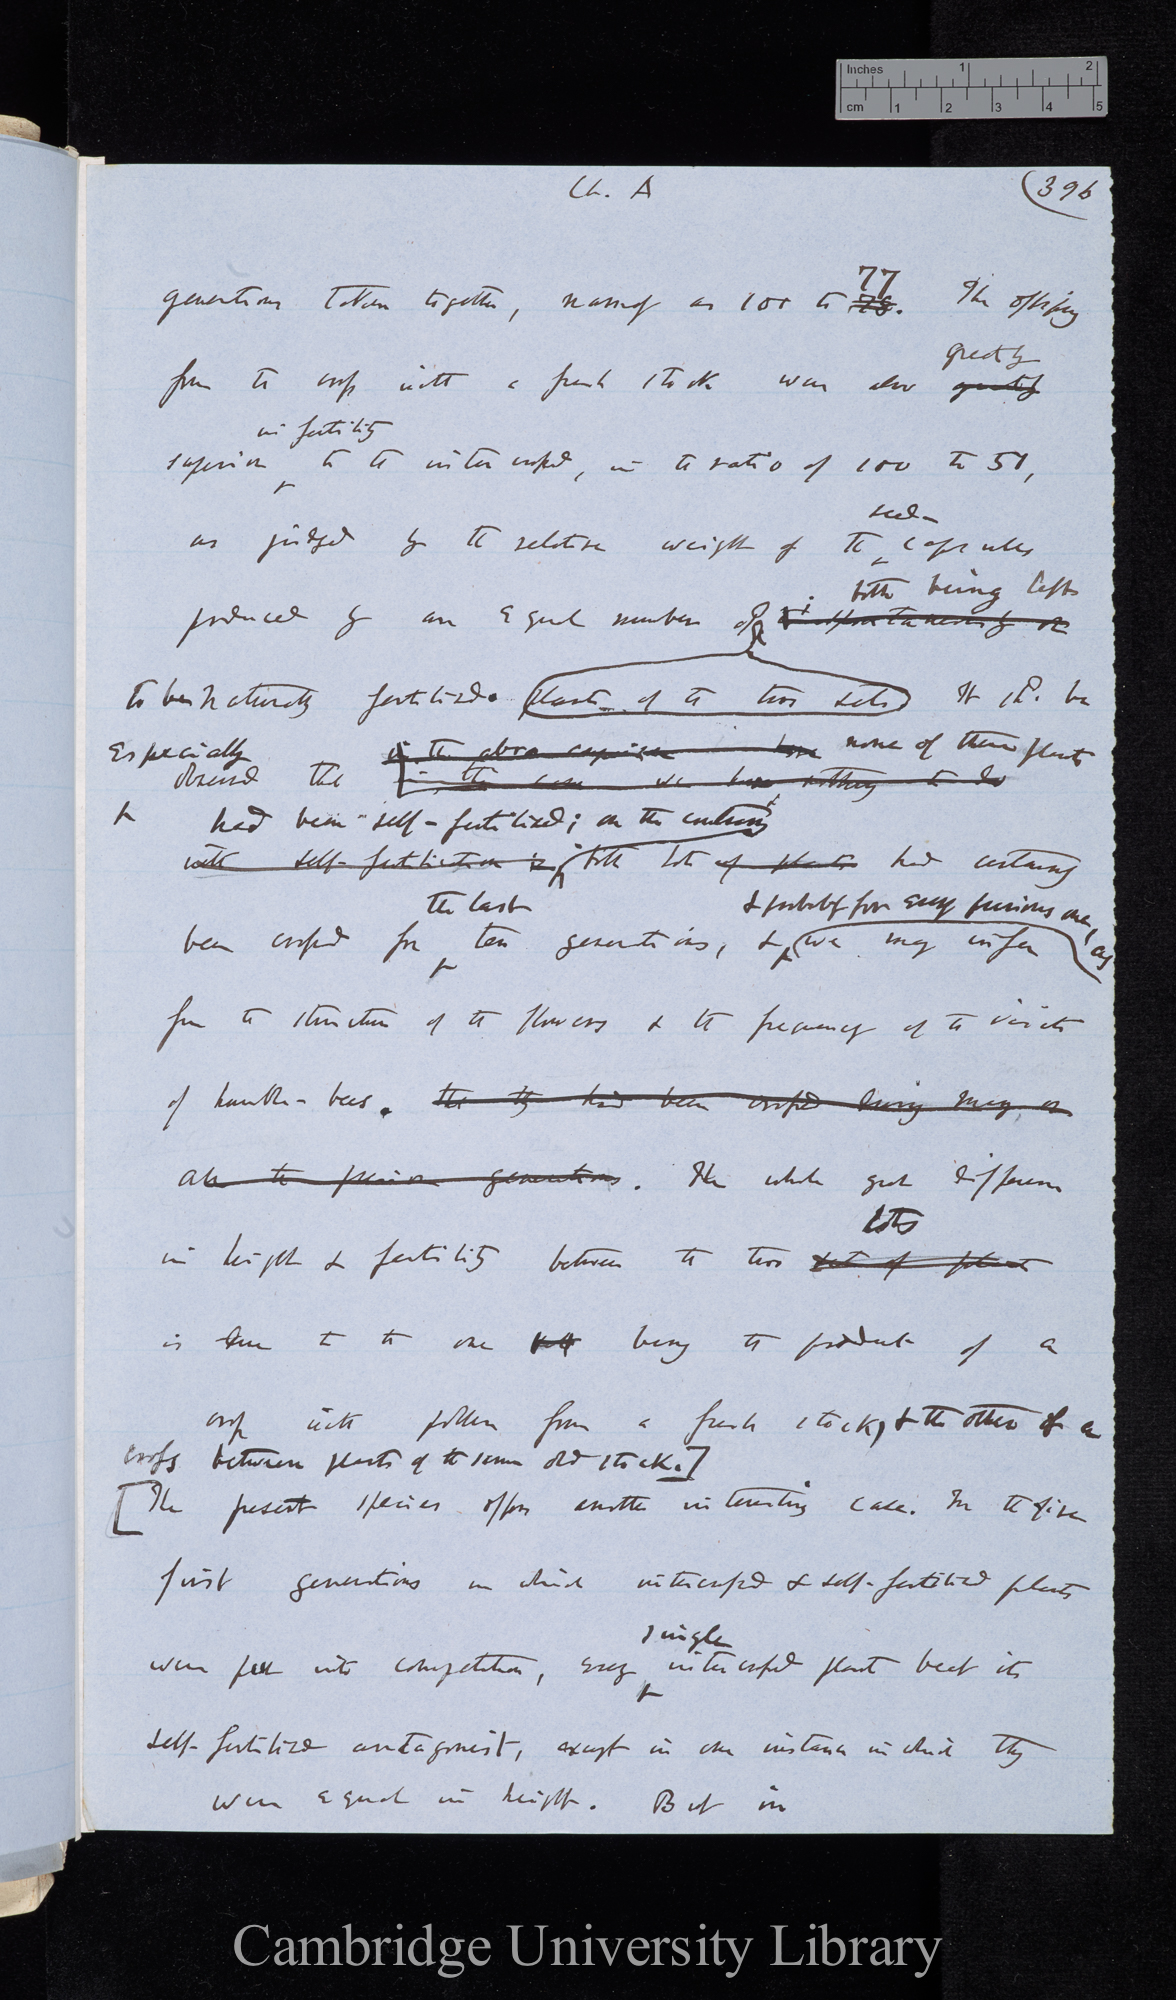 Inches 1 2
cm 1 2 3 4 5
Ch. A
(396
77
generations taken together, namely as 100 to 78. The offspring
greatly
from the cross with a fresh stock were also greatly
in fertility
superior to the intercrossed, in the ratio of 100 to 51,
seed-
as judged by the relative weight of the capsules
both being left
produced by an equal number of spontaneously or
to be naturally fertilised. plants of the two sets It shd. be
especially in the above comparison none of these plants
observed that in this case we have nothing to do
had been self-fertilised; on the contrary
with self-fertilisation both lots of plants had certainly
the last & probably for every previous one, as
been crossed for ten generations, & we may infer
from the structure of the flowers & the frequency of the visits
of humble-bees. that they had been crossed during many or
all the previous generations. The whole great difference
lots
in height & fertility between the two sets of plants
is due to the one being the product of a
cross with pollen from a fresh stock, & the other of a
cross between plants of the same old stock.]
[The present species offers another interesting case. In the five
first generations in which intercrossed & self-fertilised plants
single
were put into competition, every intercrossed plant beat its
self-fertilised antagonist, except in one instance in which they
were equal in height. But in
Cambridge University Library